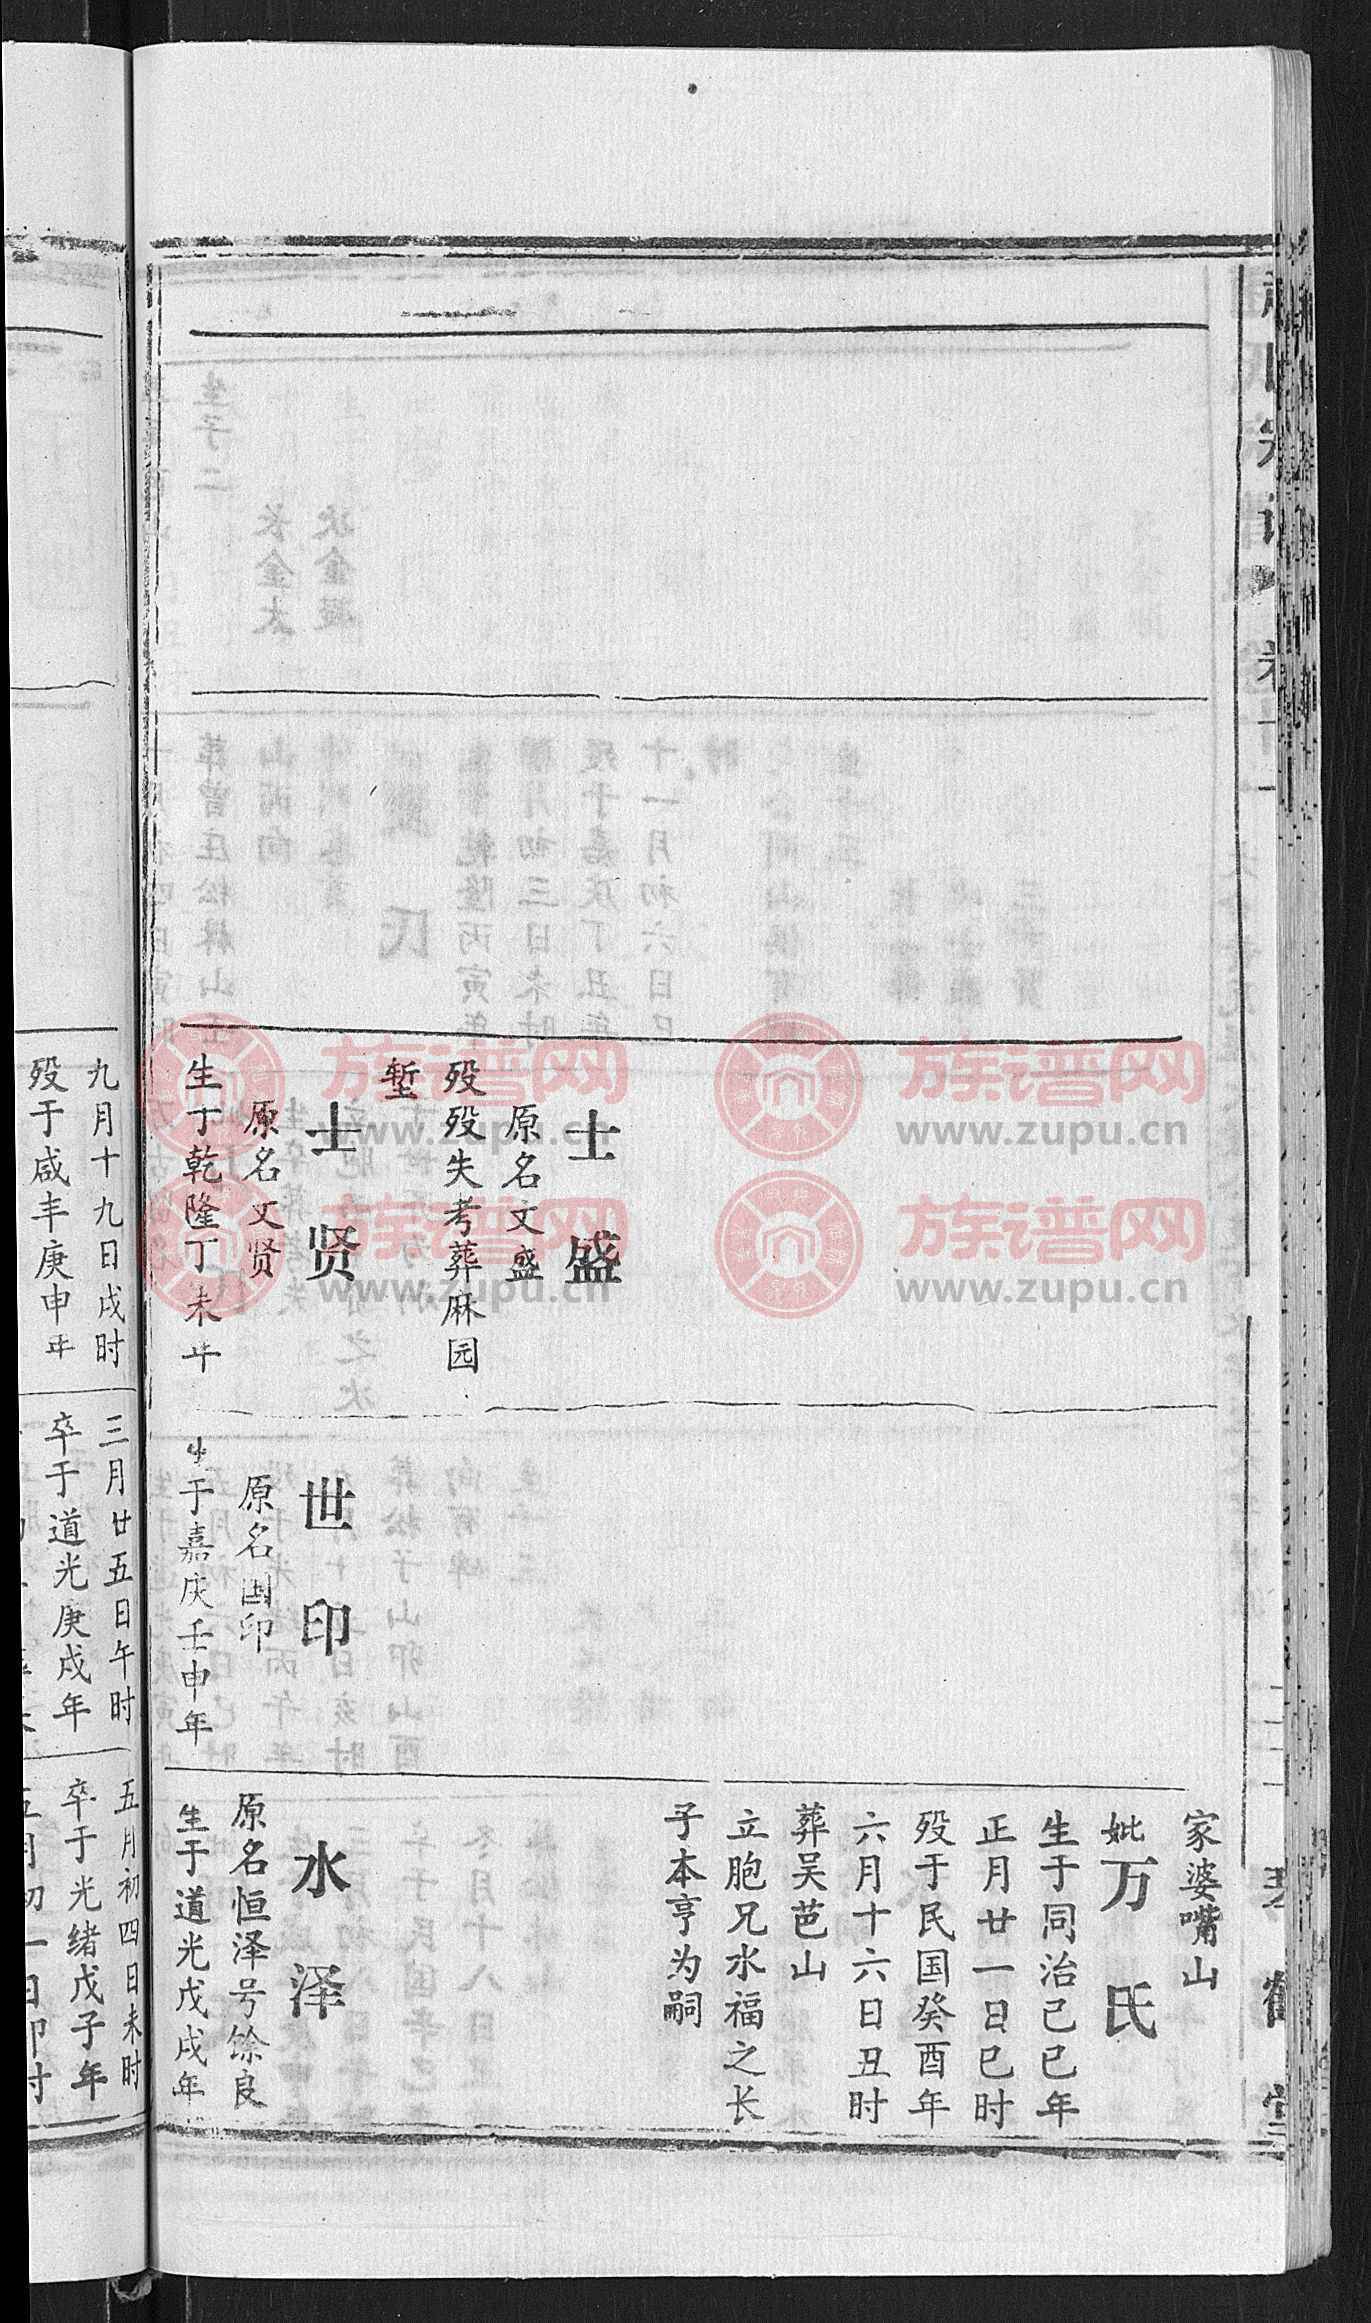 士盛
原名文盛
殁殁失考葬麻园
堑
士贤
原名文贤
生丁乾隆丁未年
世印
原名国印
生于嘉庆壬申年
家婆嘴山
妣万氏
生于同治己巳年
正月廿一日巳时
殁于民国癸酉年
六月十六日丑时
葬吴芭山
立胞兄水福之长
子本亨为嗣
水泽
原名恒泽号馀良
生于道光戊戌年
九月十九日戌时
殁于咸丰庚申年
三月廿五日午时
卒于道光庚戌年
五月初四日未时
卒于光绪戊子年
五月初一日卯时
族谱网
www.zupu.cn
族谱网
www.zupu.cn
族谱网
www.zupu.cn
族谱网
www.zupu.cn